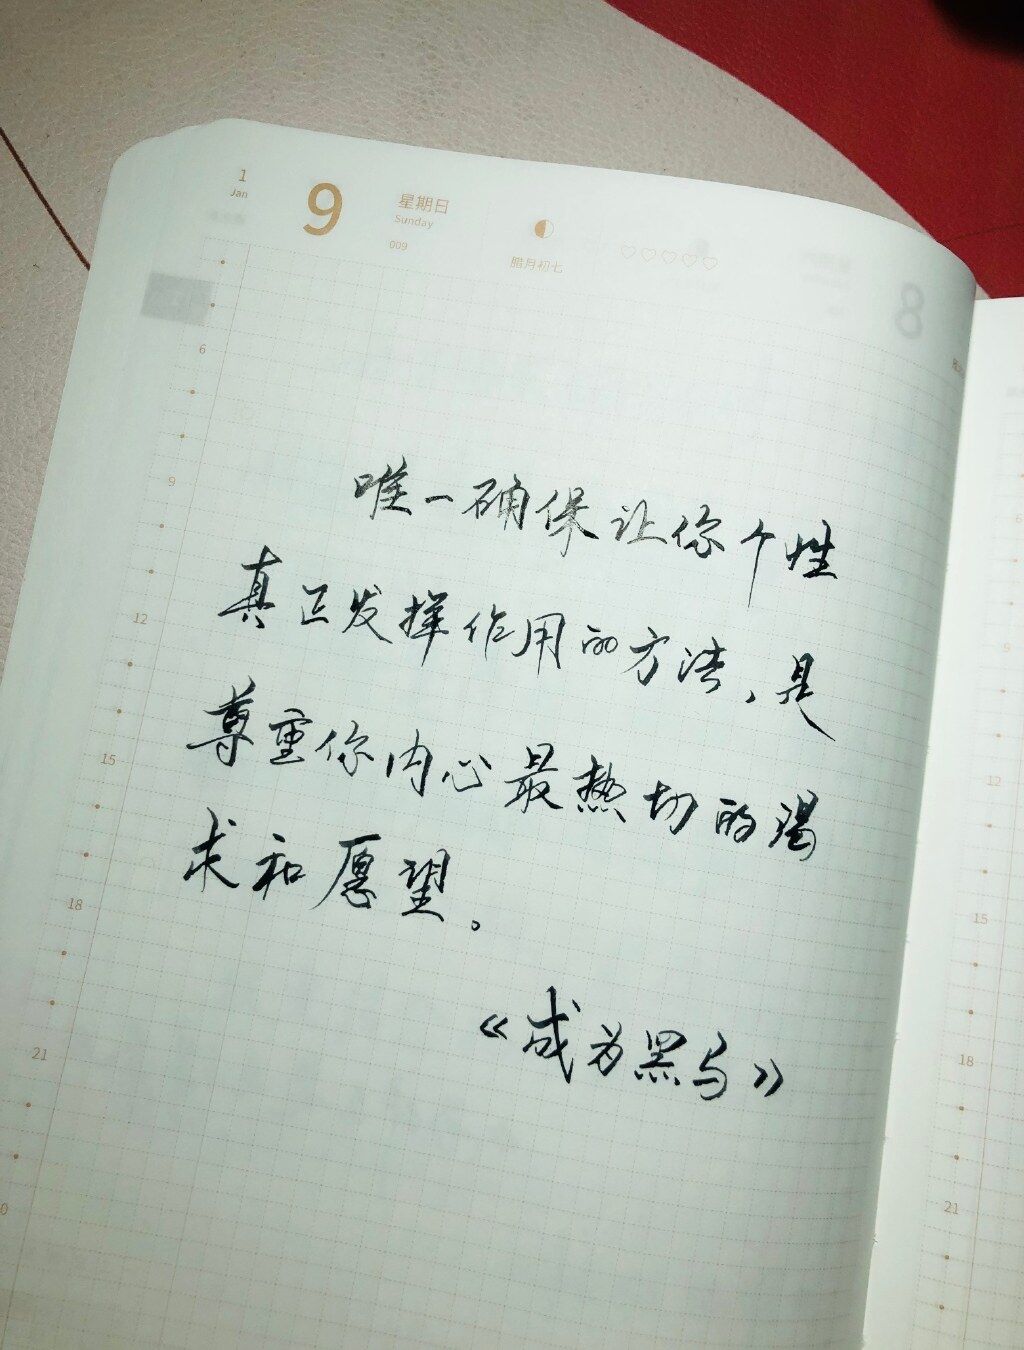 1
Jan
9
星期日
Sunday
009
腊月初七
8
6
9
12
15
18
21
唯一确保让你个性
真正发挥作用的方法,是
尊重你内心最热切的渴
求和愿望。
《成为黑马》
9
12
15
18
21